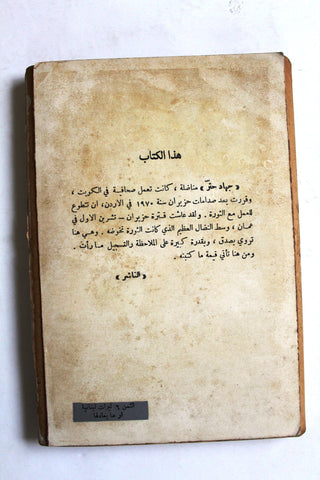 هذا الكتاب
« جهاد حتر » مناضلة ، كانت تعمل صحافية في الكويت ،
وقررت بعد صدامات حزيران سنة ١٩٧٠ في الاردن، ان تتطوع
للعمل مع الثورة . ولقد عاشت فترة حزيران – تشرين الاول في
عمان ، وسط النضال العظيم الذي كانت الثورة تخوضه . وهي هنا
تروي بصدق ، وبقدرة كبيرة على الملاحظة والتسجيل ما رأت .
ومن هنا تأتي قيمة ما كتبته .
« الناشر »
الثمن ٦ ليرات لبنانية
او ما يعادلها